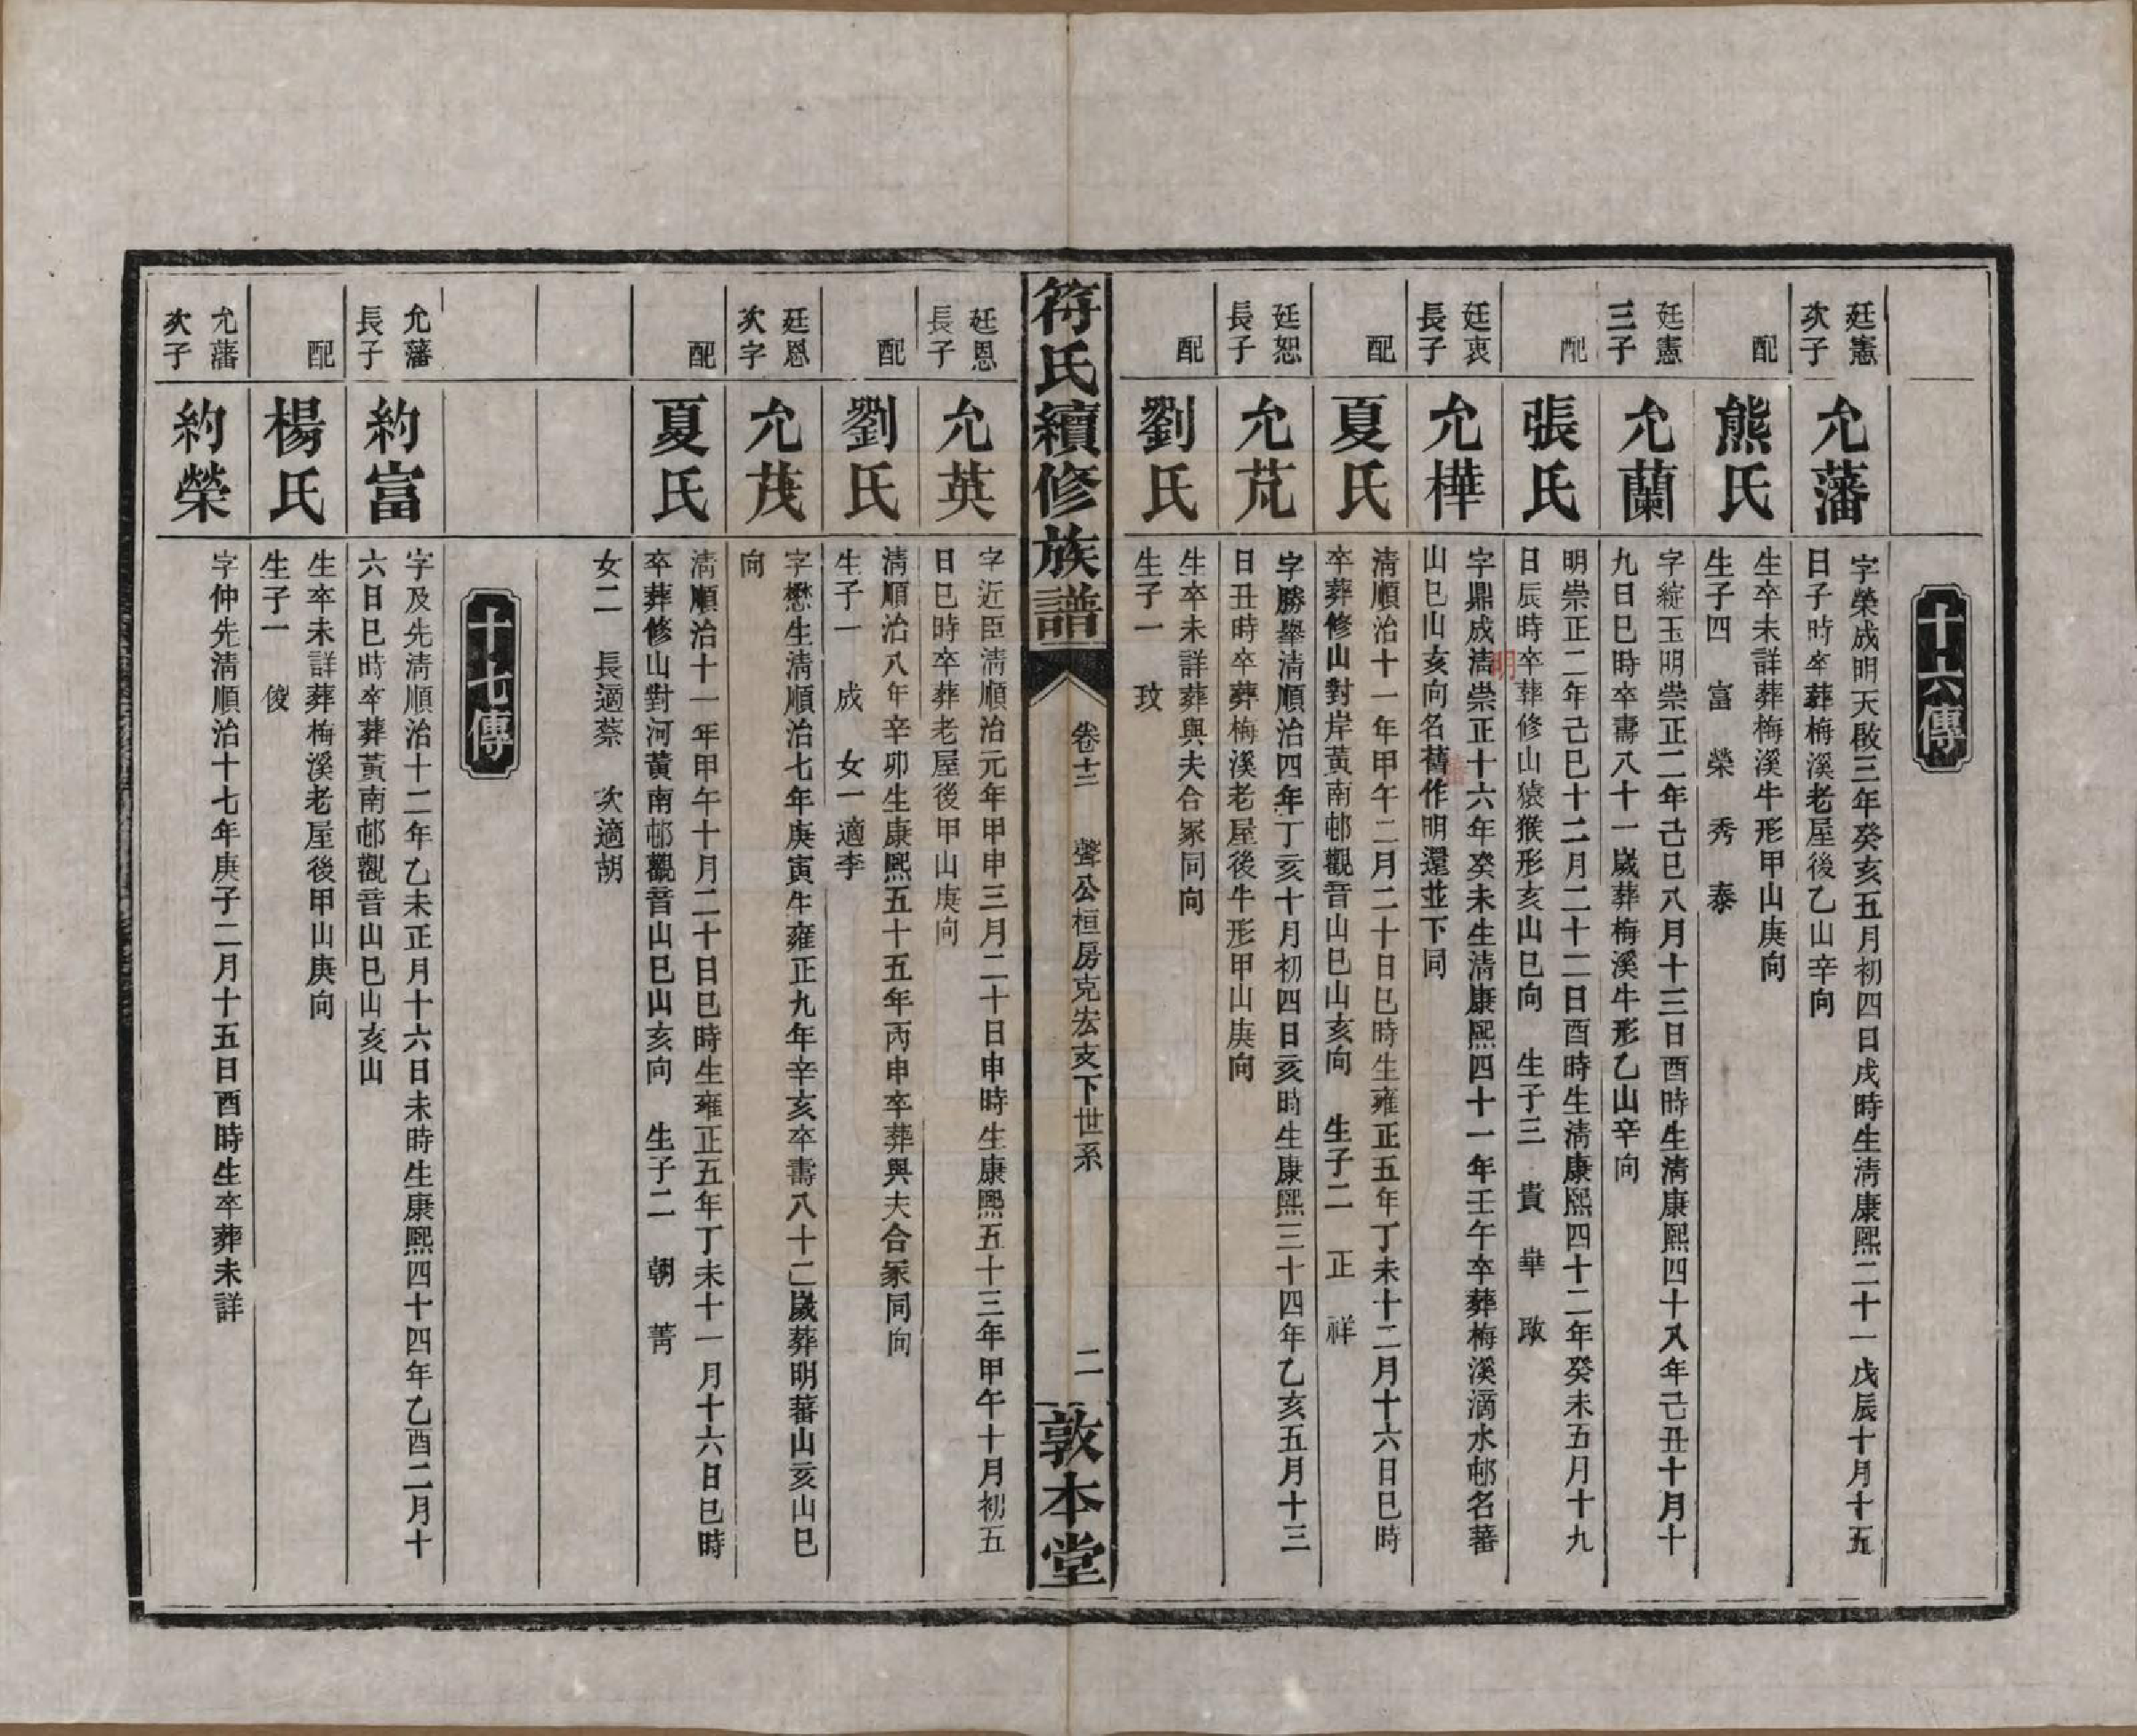 十六傳
廷憲
次子
允藩
字榮成明天啟三年癸亥五月初四日戌時生清康熙二十一戊辰十月十五
日子時卒葬梅溪老屋後乙山辛向
配
熊氏
生卒未詳葬梅溪牛形甲山庚向
生子四 富 榮 秀 泰
廷憲
三子
允蘭
字綻玉明崇正二年己巳八月十三日酉時生清康熙四十八年己丑十月十
九日巳時卒壽八十一歲葬梅溪牛形乙山辛向
配
張氏
明崇正二年己巳十二月二十二日酉時生清康熙四十二年癸未五月十九
日辰時卒葬修山猿猴形亥山巳向 生子三 貴 華 敢
廷衷
長子
允樺
字鼎成清崇正十六年癸未生清康熙四十一年壬午卒葬梅溪滴水邨名蕃
明
山巳山亥向名舊作明還並下同
配
夏氏
清順治十一年甲午二月二十日巳時生雍正五年丁未十二月十六日巳時
卒葬修山對岸黃南邨觀音山巳山亥向 生子二 正 祥
廷恕
長子
允芃
字勝舉清順治四年丁亥十月初四日亥時生康熙三十四年乙亥五月十三
日丑時卒葬梅溪老屋後牛形甲山庚向
配
劉氏
生卒未詳葬與夫合冢同向
生子一 玟
符氏續修族譜
卷十二 聲公桓房克宏支下世系
二
敦本堂
廷恩
長子
允英
字近臣清順治元年甲申三月二十日申時生康熙五十三年甲午十月初五
日巳時卒葬老屋後甲山庚向
配
劉氏
清順治八年辛卯生康熙五十五年丙申卒葬與夫合冢同向
生子一 成 女一適李
廷恩
次字
允茂
字懋生清順治七年庚寅生雍正九年辛亥卒壽八十二歲葬明蕃山亥山巳
向
配
夏氏
清順治十一年甲午十月二十日巳時生雍正五年丁未十一月十六日巳時
卒葬修山對河黃南邨觀音山巳山亥向 生子二 朝 菁
女二 長適蔡 次適胡
十七傳
允藩
長子
約富
字及先清順治十二年乙未正月十六日未時生康熙四十四年乙酉二月十
六日巳時卒葬黃南邨觀音山巳山亥山
配
楊氏
生卒未詳葬梅溪老屋後甲山庚向
生子一 俊
允藩
次子
約榮
字仲先清順治十七年庚子二月十五日酉時生卒葬未詳